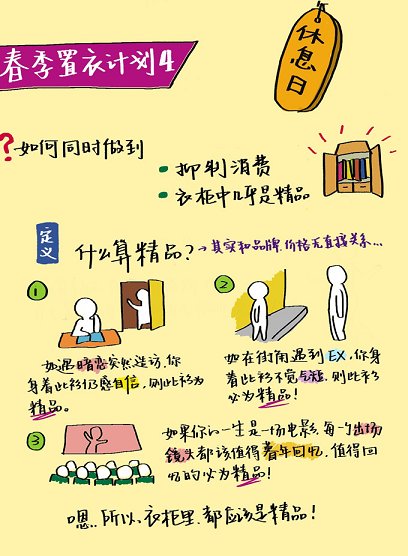 休息日
春季置衣计划4
?如何同时做到
•抑制消费
•衣柜中几乎是精品
定义
什么算精品?→其实和品牌、价格无直接关系...
①
如遇暗恋突然造访,你
身着此衫仍感自信,则此衫为
精品。
②
如在街角遇到EX,你身
着此衫不觉气短,则此衫
必为精品!
③
如果你的一生是一场电影,每一次出场
镜头都该值得暮年回忆,值得回
忆的必为精品!
嗯..所以,衣柜里,都应该是精品!